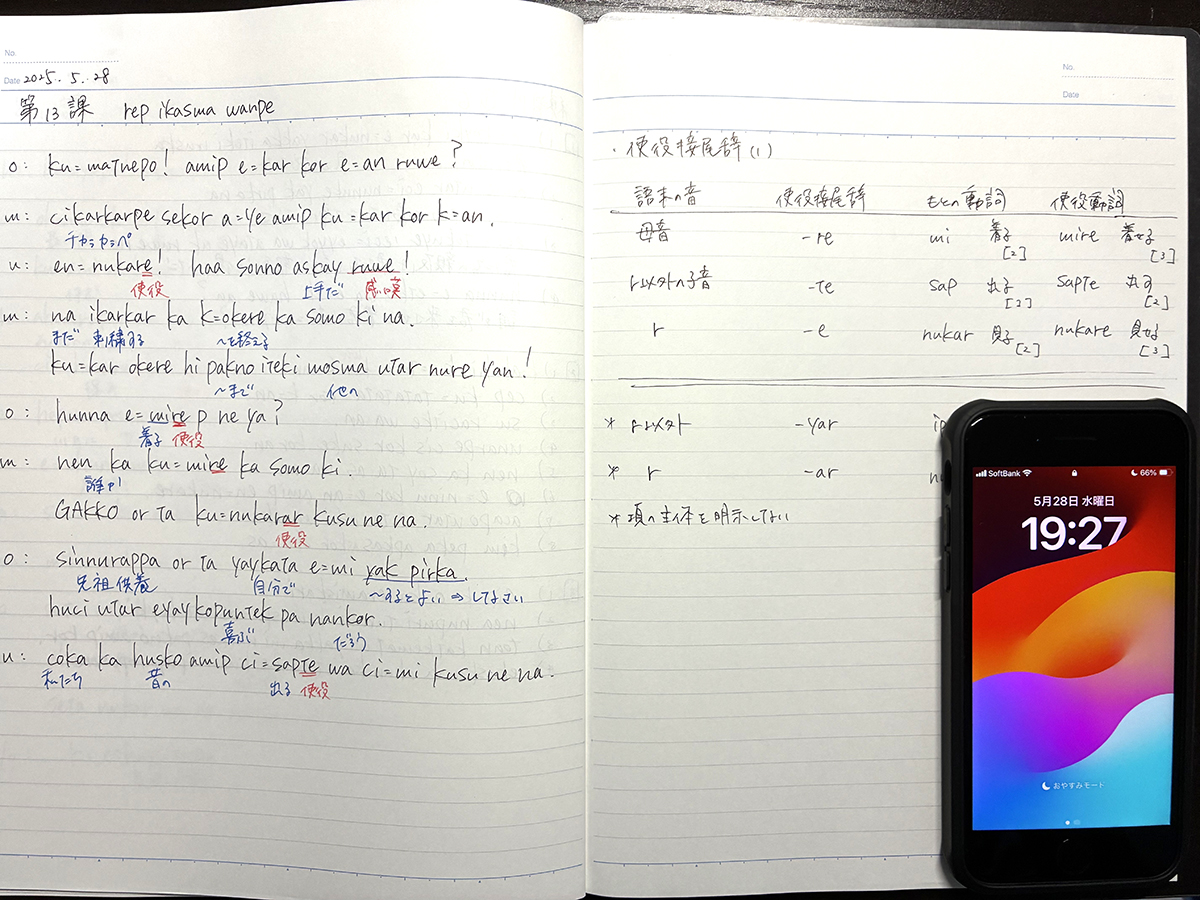 No.
Date 2025. 5. 28
第13課 rep ikasma wanpe
o: ku=matnepo! amip e=kar kor e=an ruwe?
m: cikarkarpe sekor a=ye amip ku=kar kor k=an.
チカㇻカㇻペ
u: en=nukare! haa sonno askay ruwe!
使役 上手だ 感嘆
m: na ikarkar ka k=okere ka somo ki na.
まだ 刺繍する 〜を終える
ku=kar okere hi pakno iteki mosma utar nure yan!
〜まで 他の
o: hunna e=mire p ne ya?
着る 使役
m: nen ka ku=mire ka somo ki.
誰か
GAKKO or ta ku=nukarar kusu ne na.
使役
o: sinnurappa or ta yaykata e=mi yak pirka.
先祖供養 自分で 〜するとよい ⇒ しなさい
huci utar eyaykopuntek pa nankor.
喜ぶ だろう
u: coka ka husko amip ci=sapte wa ci=mi kusu ne na.
私たち 昔の 出る 使役
No.
Date
・使役接尾辞(1)
語末の音 使役接尾辞 もとの動詞 使役動詞
母音 -re mi 着る [2] mire 着せる [3]
r以外の子音 -te sap 出る [1] sapte 出す [2]
r -e nukar 見る [2] nukare 見せる [3]
* r以外 -yar
* r -ar
* 項の主体を明示しない
SoftBank 66%
5月28日 水曜日
19:27
おやすみモード